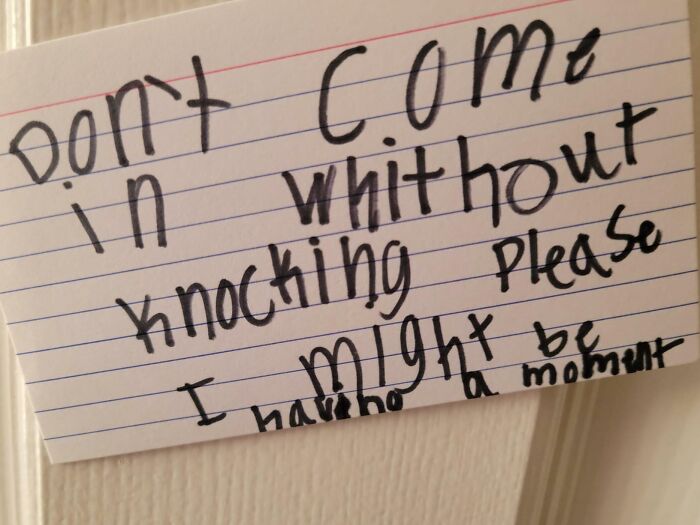 Don't come
in whithout
knocking please
I might be
haveho a moment